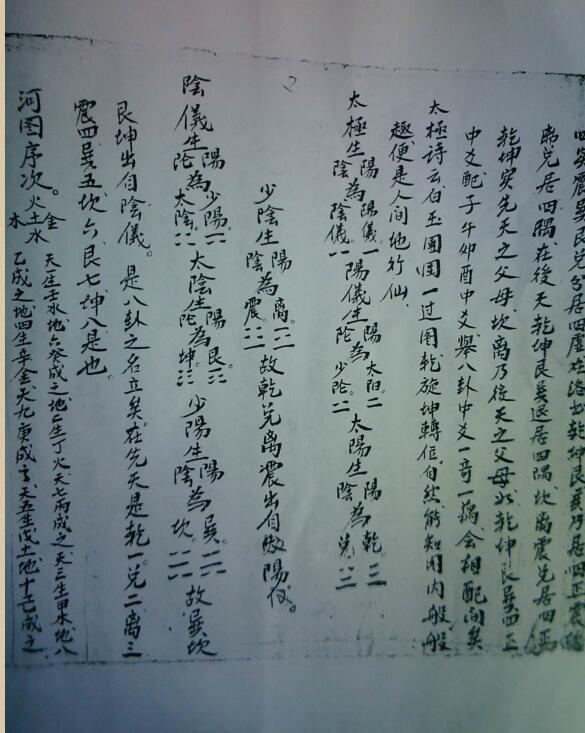 四卦震巽艮兌分居四虛在後天乾坤艮巽乃居四正震巽
艮兌居四隅、在後天乾坤艮巽退居四隅坎离震兌居四正
乾坤实先天之父母坎离乃後天之父母此乾坤艮巽四正
中爻配子午卯酉中爻舉八卦中爻一奇一耦會相配间矣
太極诗云白玉團團一过图乾旋坤轉任自然能知图内般般
趣便是人间地行仙、
太極生陽為陽儀陰為陰儀陽儀生陽為太陽陰為少陰太陽生陽為乾陰為兌
少陰生陽為离陰為震故乾兌离震出自於陽仪。
陰儀生陽為少陽陰為太陰太陰生陽為艮陰為坤少陽生陽為巽陰為坎故巽坎
艮坤出自陰儀。是八卦之名立矣。在先天是乾一兌二离三
震四巽五坎六艮七坤八是也。
河图序次。火土水金木
天一生壬水地六癸成之地二生丁火天七丙成之天三生甲木地八
乙成之地四生辛金天九庚成之天五生戊土地十己成之